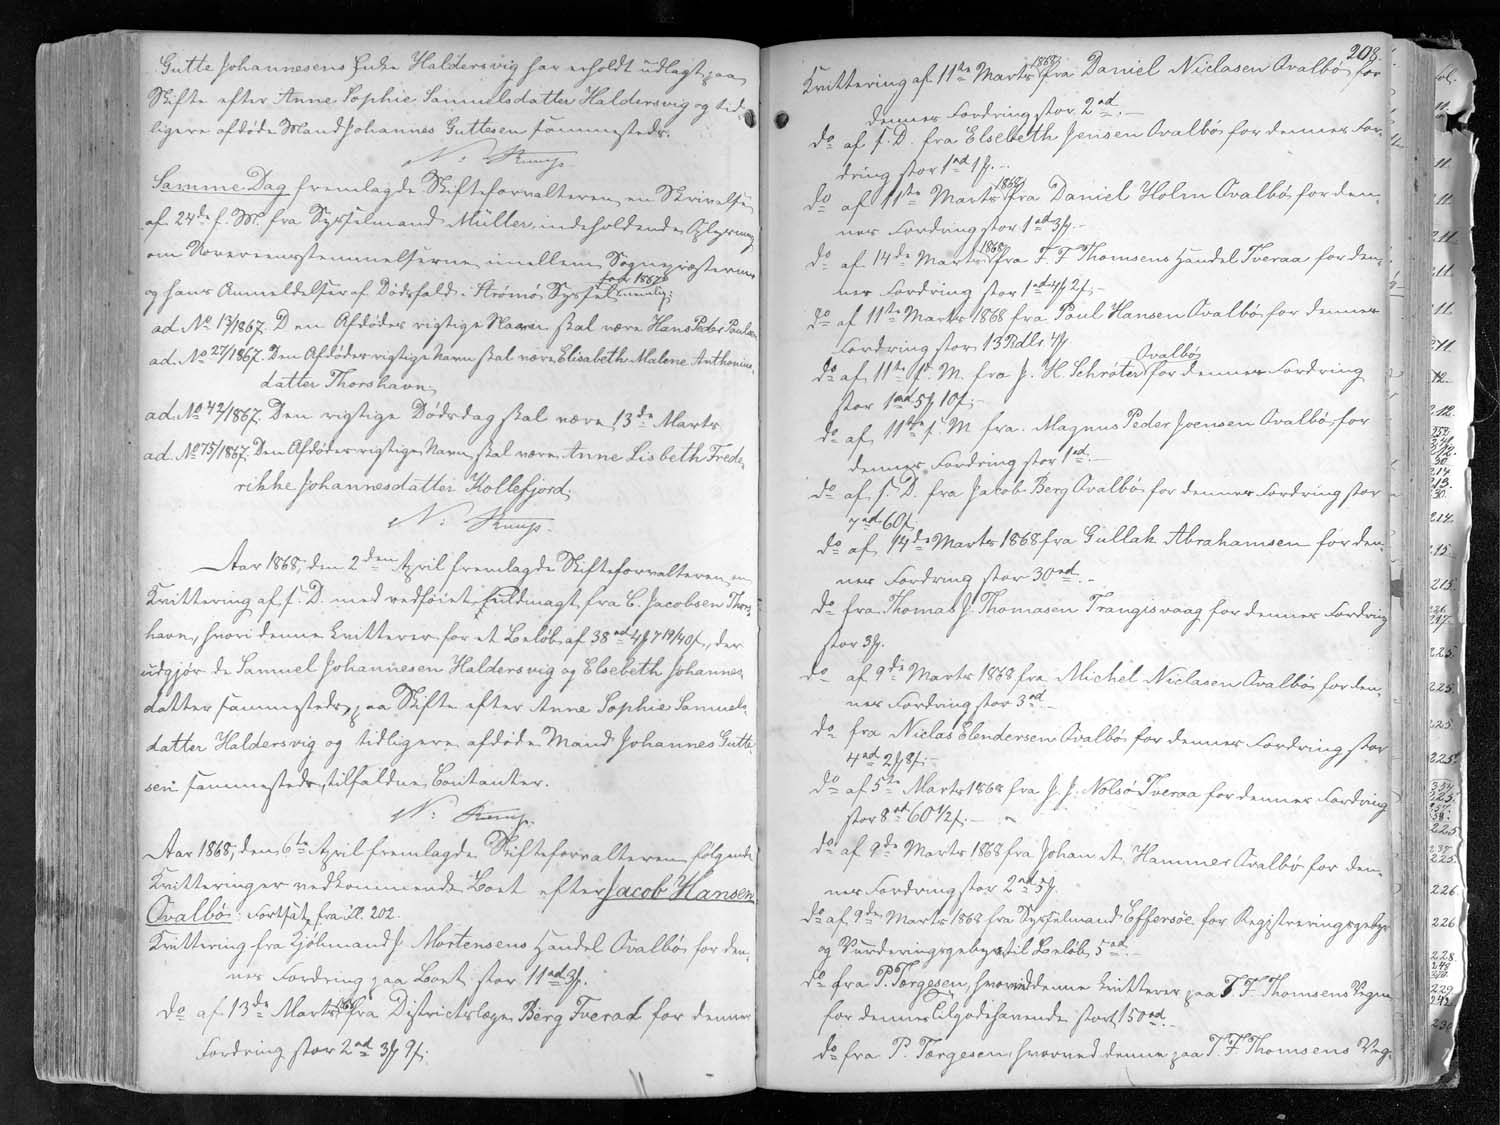 Gutte Johannesens Enke Haldersvig har erholdt udlagt paa
Skifte efter Anne Sophie Samuelsdatter Haldersvig og tid-
ligere afdøde Mand Johannes Guttesen sammesteds.
Samme Dag fremlagde Skifteforvalteren en Skrivelse
af 24de f. M. fra Sysselmand Müller, indeholdende Oplysning
om Uoverensstemmelserne imellem Sognepræsterne
og hans Anmeldelser af Dødsfald i Strømø Syssel for 1867 nemlig:
ad. No 13/1867. Den Afdødes rigtige Navn skal være Hans Peder Poulsen
ad. No 27/1867. Den Afdødes rigtige Navn skal være Elisabeth Malene Anthonius-
datter Thorshavn.
ad. No 42/1867. Den rigtige Dødsdag skal være 13de Marts
ad. No 75/1867. Den Afdødes rigtige Navn skal være Anne Lisbeth Frede-
rikke Johannesdatter Kollefjord.
Aar 1868, den 2den April fremlagde Skifteforvalteren en
Kvittering af s. D. med vedføiet Fuldmagt fra C. Jacobsen Thors-
havn, hvori denne kvitterer for et Beløb af 38 rd 4 /: 7 19/40 s., der
udgjør de Samuel Johannesen Haldersvig og Elsebeth Johannes-
datter sammesteds, paa Skifte efter Anne Sophie Samuels-
datter Haldersvig og tidligere afdøde Mand Johannes Gutte-
sen sammesteds, tilfaldne Contanter.
Aar 1868, den 6te April fremlagde Skifteforvalteren følgende
Kvitteringer vedkommende Boet efter Jacob Hansen
Ovalbø. Fortsat fra fol. 202.
Kvittering fra Kjøbmand J. Mortensens Handel Ovalbø for den-
nes Fordring paa Boet, stor 11 rd 3 /:
do af 13de Marts 1868 fra Districtslæge Berg Tveraa for dennes
Fordring stor 2 rd 3 /: 9 s.
208.
Kvittering af 11te Marts 1868 fra Daniel Niclasen Ovalbø for
dennes Fordring stor 2 rd.
do af s. D. fra Elsebeth Jensen Ovalbø for dennes For-
dring stor 1 rd 1 /:
do af 11te Marts 1868 fra Daniel Holm Ovalbø for den-
nes Fordring stor 1 rd 3 /:
do af 14de Marts 1868 fra T. F. Thomsens Handel Tveraa for den-
nes Fordring stor 1 rd 4 /: 2 s.
do af 11te Marts 1868 fra Poul Hansen Ovalbø for dennes
Fordring stor 13 Rdlr 4 /:
do af 11te f. M. fra J. H. Schrøter Ovalbø for dennes Fordring
stor 1 rd 5 /: 10 s.
do af 11te f. M. fra Magnus Peder Joensen Ovalbø for
dennes Fordring stor 1 rd.
do af s. D. fra Jacob Berg Ovalbø for dennes Fordring stor
7 rd 60 s.
do af 14de Marts 1868 fra Gullak Abrahamsen for den-
nes Fordring stor 30 rd.
do fra Thomas J. Thomasen Trangisvaag for dennes Fordring
stor 3 /:
do af 9de Marts 1868 fra Michel Niclasen Ovalbø for den-
nes Fordring stor 3 rd
do fra Niclas Elendersen Ovalbø for dennes Fordring stor
4 rd 2 /: 8 s.
do af 5te Marts 1868 fra J. J. Nolsø Tveraa for dennes Fordring
stor 8 rd 60 1/2 s.
do af 9de Marts 1868 fra Johan at Hammer Ovalbø for den-
nes Fordring stor 2 rd 5 /:
do af 9de Marts 1868 fra Sysselmand Effersøe for Registreringsgebyr
og Vurderingsgebyr til Beløb 5 rd.
do fra P. Tørgesen, hvorved denne kvitterer paa T. F. Thomsens Vegne
for dennes Tilgodehavende stort 150 rd.
do fra P. Tørgesen, hvorved denne paa T. F. Thomsens Veg-